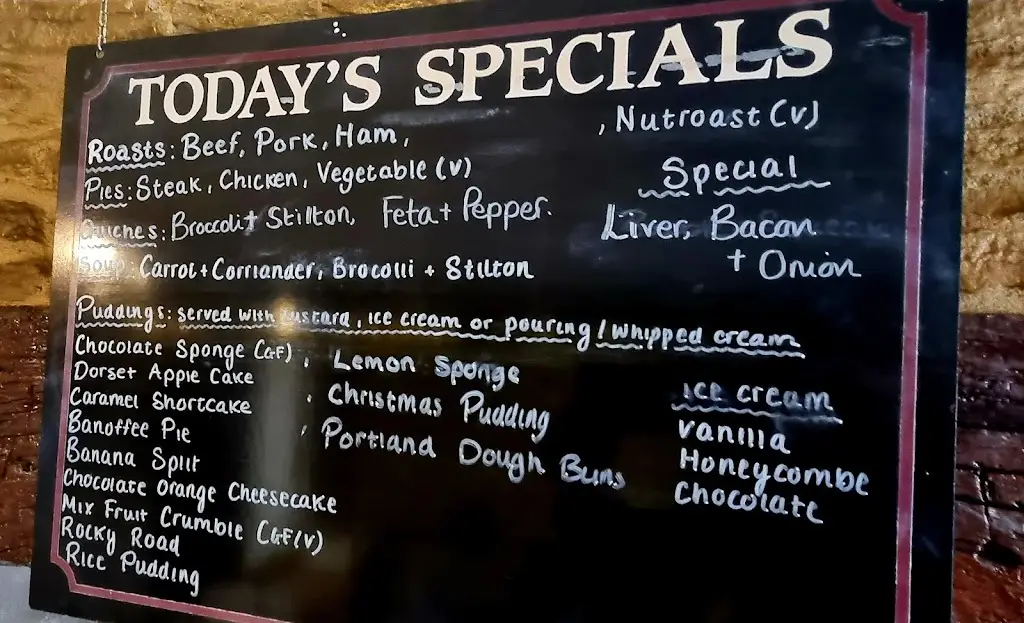 TODAY'S SPECIALS
Roasts: Beef, Pork, Ham, , Nutroast (v)
Pies: Steak, Chicken, Vegetable (v)
Quiches: Broccoli + Stilton, Feta + Pepper.
Soup: Carrot + Corriander, Brocolli + Stilton
Special
Liver, Bacon
+ Onion
Puddings: served with custard, ice cream or pouring / whipped cream
Chocolate Sponge (GF), Lemon Sponge
Dorset Apple Cake , Christmas Pudding
Caramel Shortcake , Portland Dough Buns
Banoffee Pie
Banana Split
Chocolate Orange Cheesecake
Mix Fruit Crumble (GF/V)
Rocky Road
Rice Pudding
ice cream
vanilla
Honeycombe
Chocolate